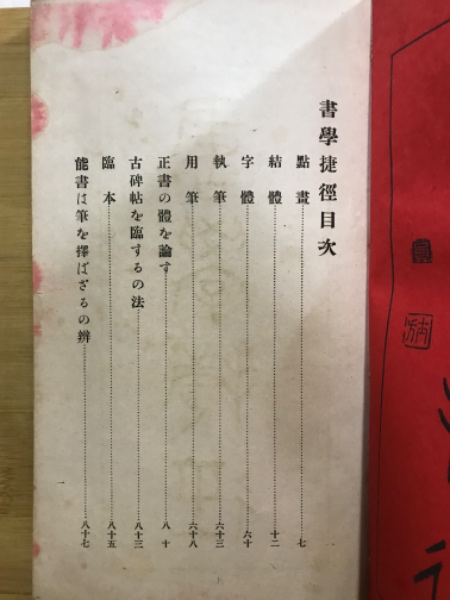 書學捷徑目次
點畫……七
結體……十二
字體……六十
執筆……六十三
用筆……六十八
正書の體を論す……八十
古碑帖を臨するの法……八十三
臨本……八十五
能書は筆を擇ばざるの辨……八十七
一